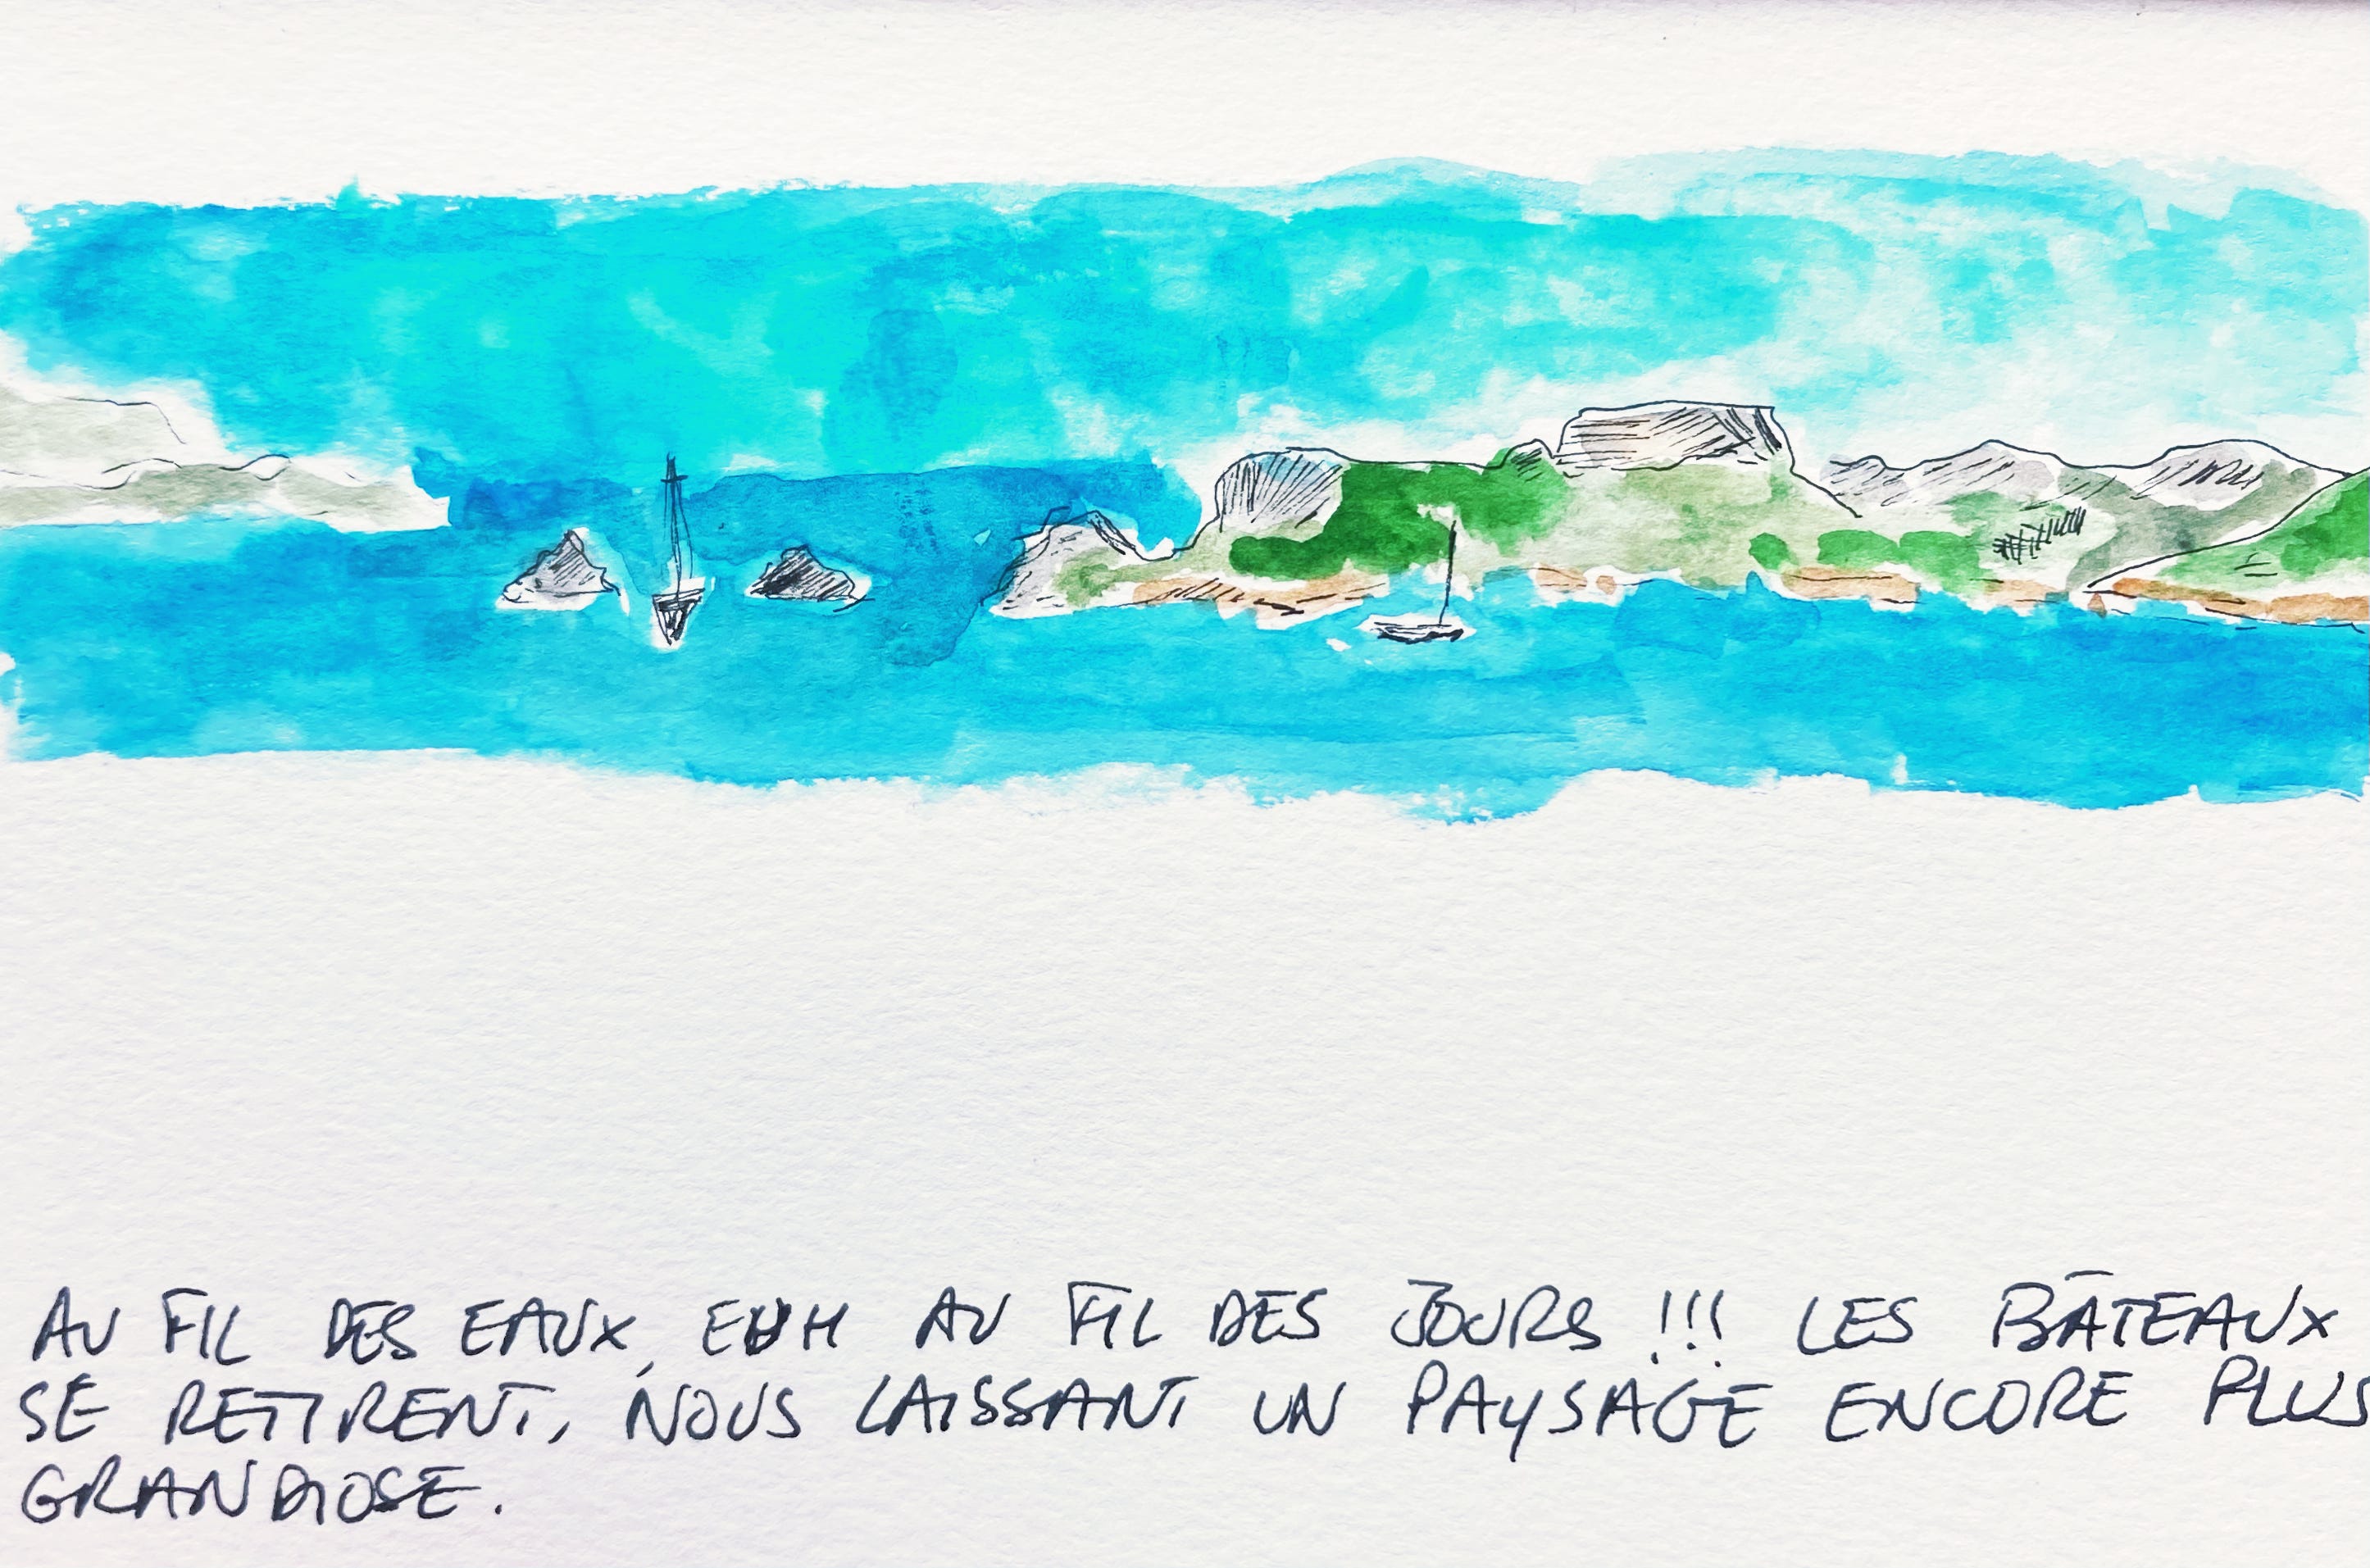 AU FIL DES EAUX, EUH AU FIL DES JOURS !!! LES BÂTEAUX
SE RETIRENT, NOUS LAISSANT UN PAYSAGE ENCORE PLUS
GRANDIOSE.